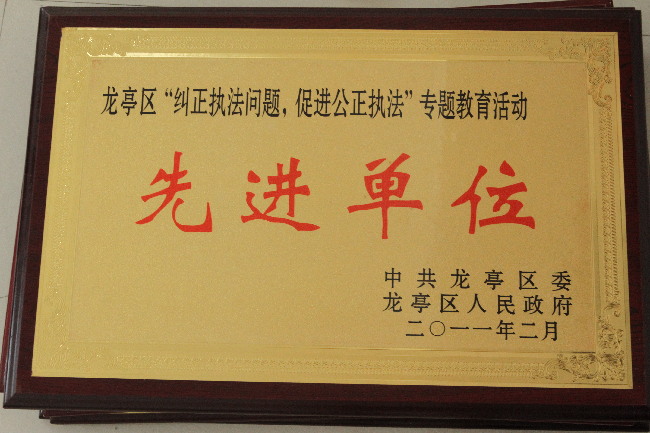 龙亭区“纠正执法问题，促进公正执法”专题教育活动
先进单位
中共龙亭区委
龙亭区人民政府
二〇一一年二月